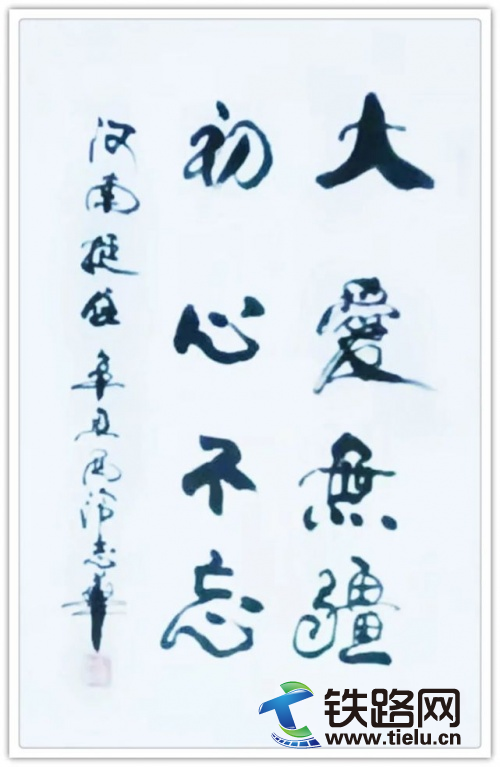 大愛無疆
初心不忘
河南挺住 辛丑 志華
铁路网
www.tielu.cn